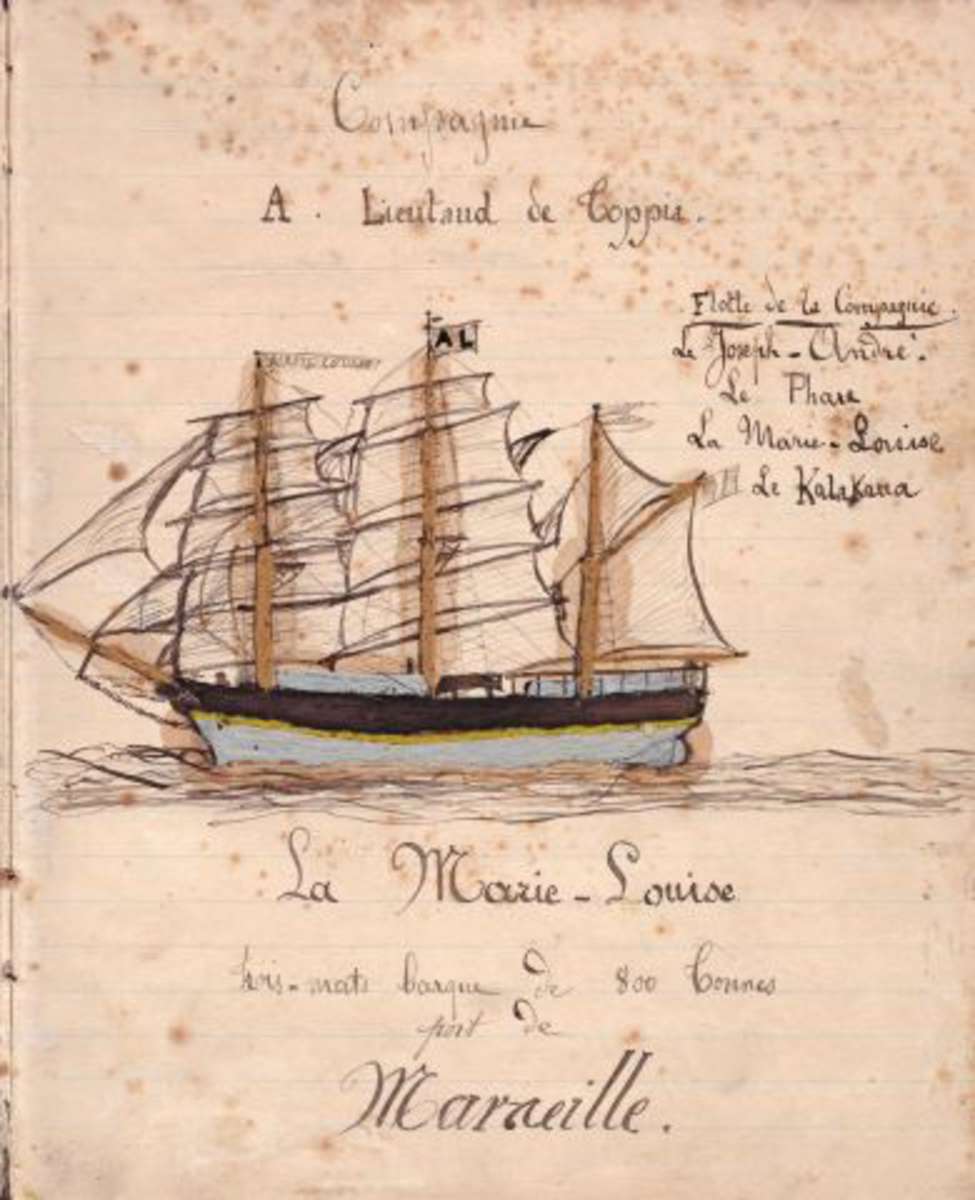 Compagnie
A. Lieutaud de Toppis.
Flotte de la Compagnie.
Le Joseph-André.
Le Phare
La Marie-Louise
Le Kalakaua
AL
La Marie-Louise
trois-mats barque de 800 Tonnes
port de
Marseille.